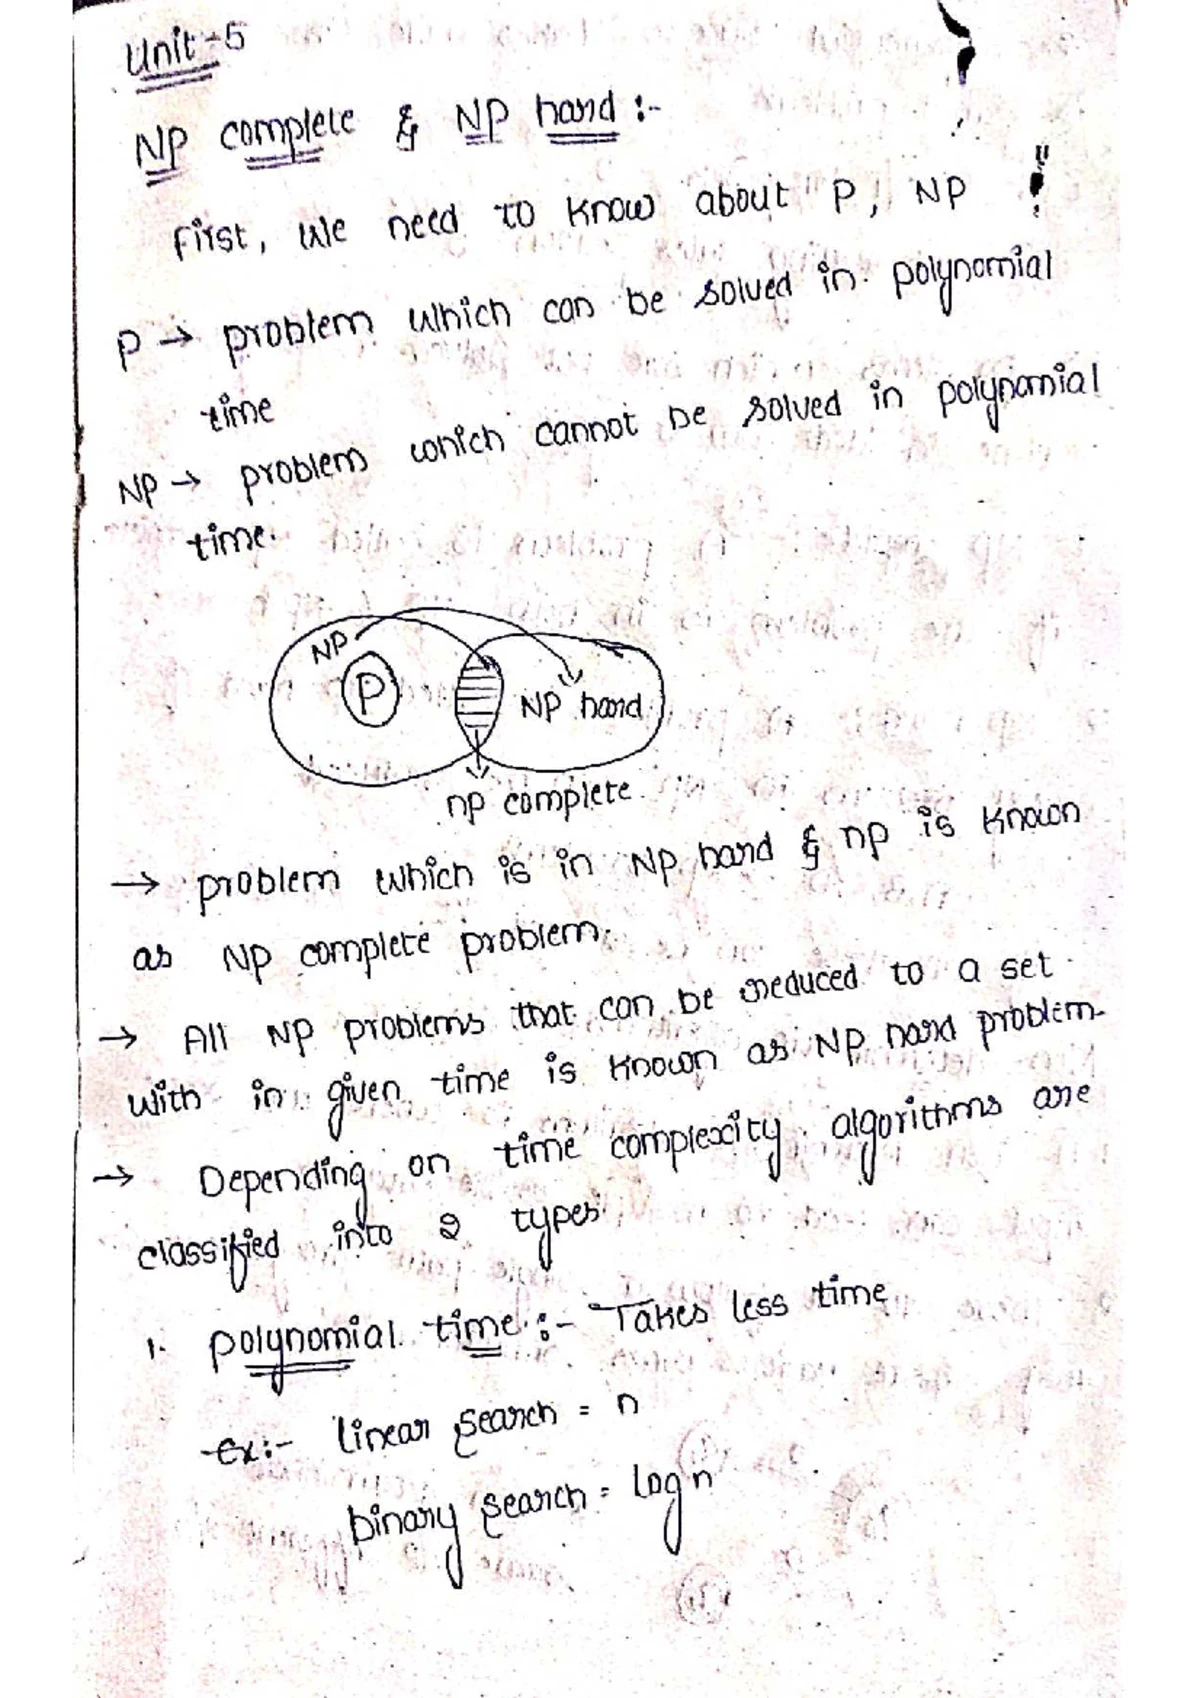 Unit-5
NP complete & NP hard :-
First, we need to know about P, NP
P → problem which can be solved in polynomial
time
NP → problem which cannot be solved in polynomial
time.
NP
P
NP hard
np complete
→ problem which is in NP hard & np is known
as NP complete problem.
→ All NP problems that can be reduced to a set
with in given time is known as NP hard problem.
→ Depending on time complexity algorithms are
classified into 2 types
1. polynomial time :- Takes less time
Ex:- linear search = n
binary search = log n